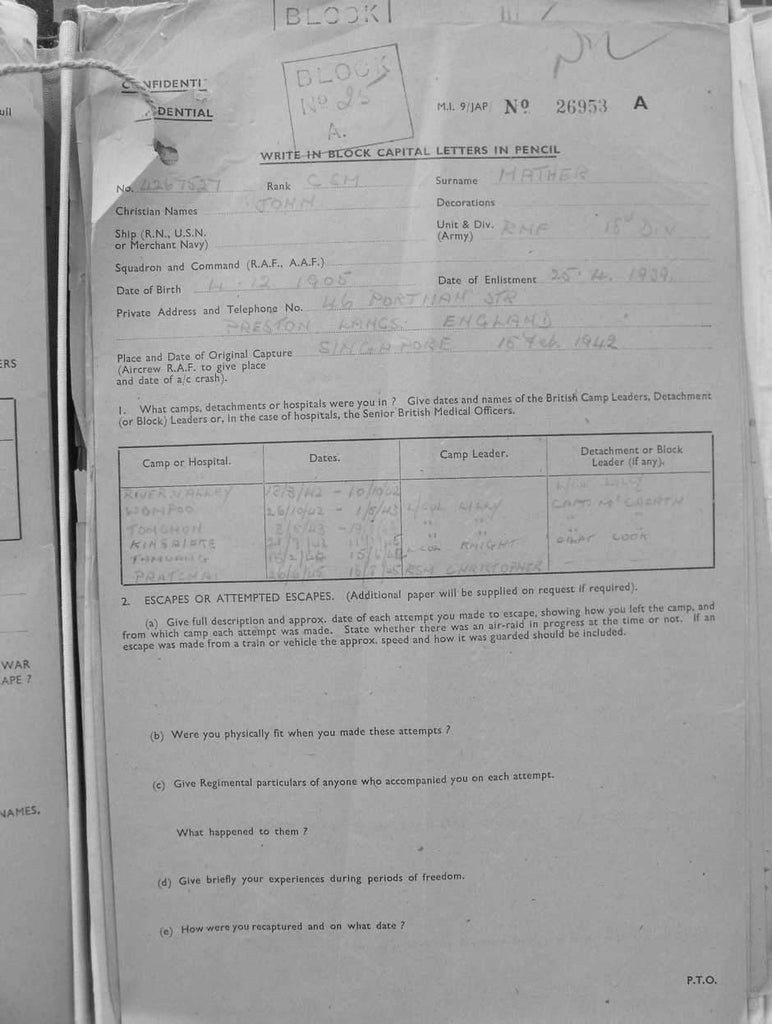 BLOCK
CONFIDENTI
DENTIAL
BLOCK
No 25
A.
M.I. 9/JAP No 26953 A
WRITE IN BLOCK CAPITAL LETTERS IN PENCIL
No. 4267527 Rank CSM Surname MATHER
Christian Names JOHN Decorations
Ship (R.N., U.S.N. or Merchant Navy)
Unit & Div. (Army) RNF 18 DIV
Squadron and Command (R.A.F., A.A.F.)
Date of Birth 4.12 1905 Date of Enlistment 25.4.1939
Private Address and Telephone No. 46 PORTMAN STR
PRESTON LANCS. ENGLAND
Place and Date of Original Capture SINGAPORE 15 Feb 1942
(Aircrew R.A.F. to give place
and date of a/c crash).
1. What camps, detachments or hospitals were you in ? Give dates and names of the British Camp Leaders, Detachment
(or Block) Leaders or, in the case of hospitals, the Senior British Medical Officers.
Camp or Hospital. Dates. Camp Leader. Detachment or Block Leader (if any).
RIVER VALLEY
WOMPOO 26/10/42 - 1/5/43 L/COL LILLY CAPT.
TONCHON
KINSAIOKE COL KNIGHT COOK
TAMUANG
PRATCHAI RSM CHRISTOPHER
2. ESCAPES OR ATTEMPTED ESCAPES. (Additional paper will be supplied on request if required).
(a) Give full description and approx. date of each attempt you made to escape, showing how you left the camp, and
from which camp each attempt was made. State whether there was an air-raid in progress at the time or not. If an
escape was made from a train or vehicle the approx. speed and how it was guarded should be included.
(b) Were you physically fit when you made these attempts ?
(c) Give Regimental particulars of anyone who accompanied you on each attempt.
What happened to them ?
(d) Give briefly your experiences during periods of freedom.
(e) How were you recaptured and on what date ?
P.T.O.
ERS
WAR
APE ?
NAMES.